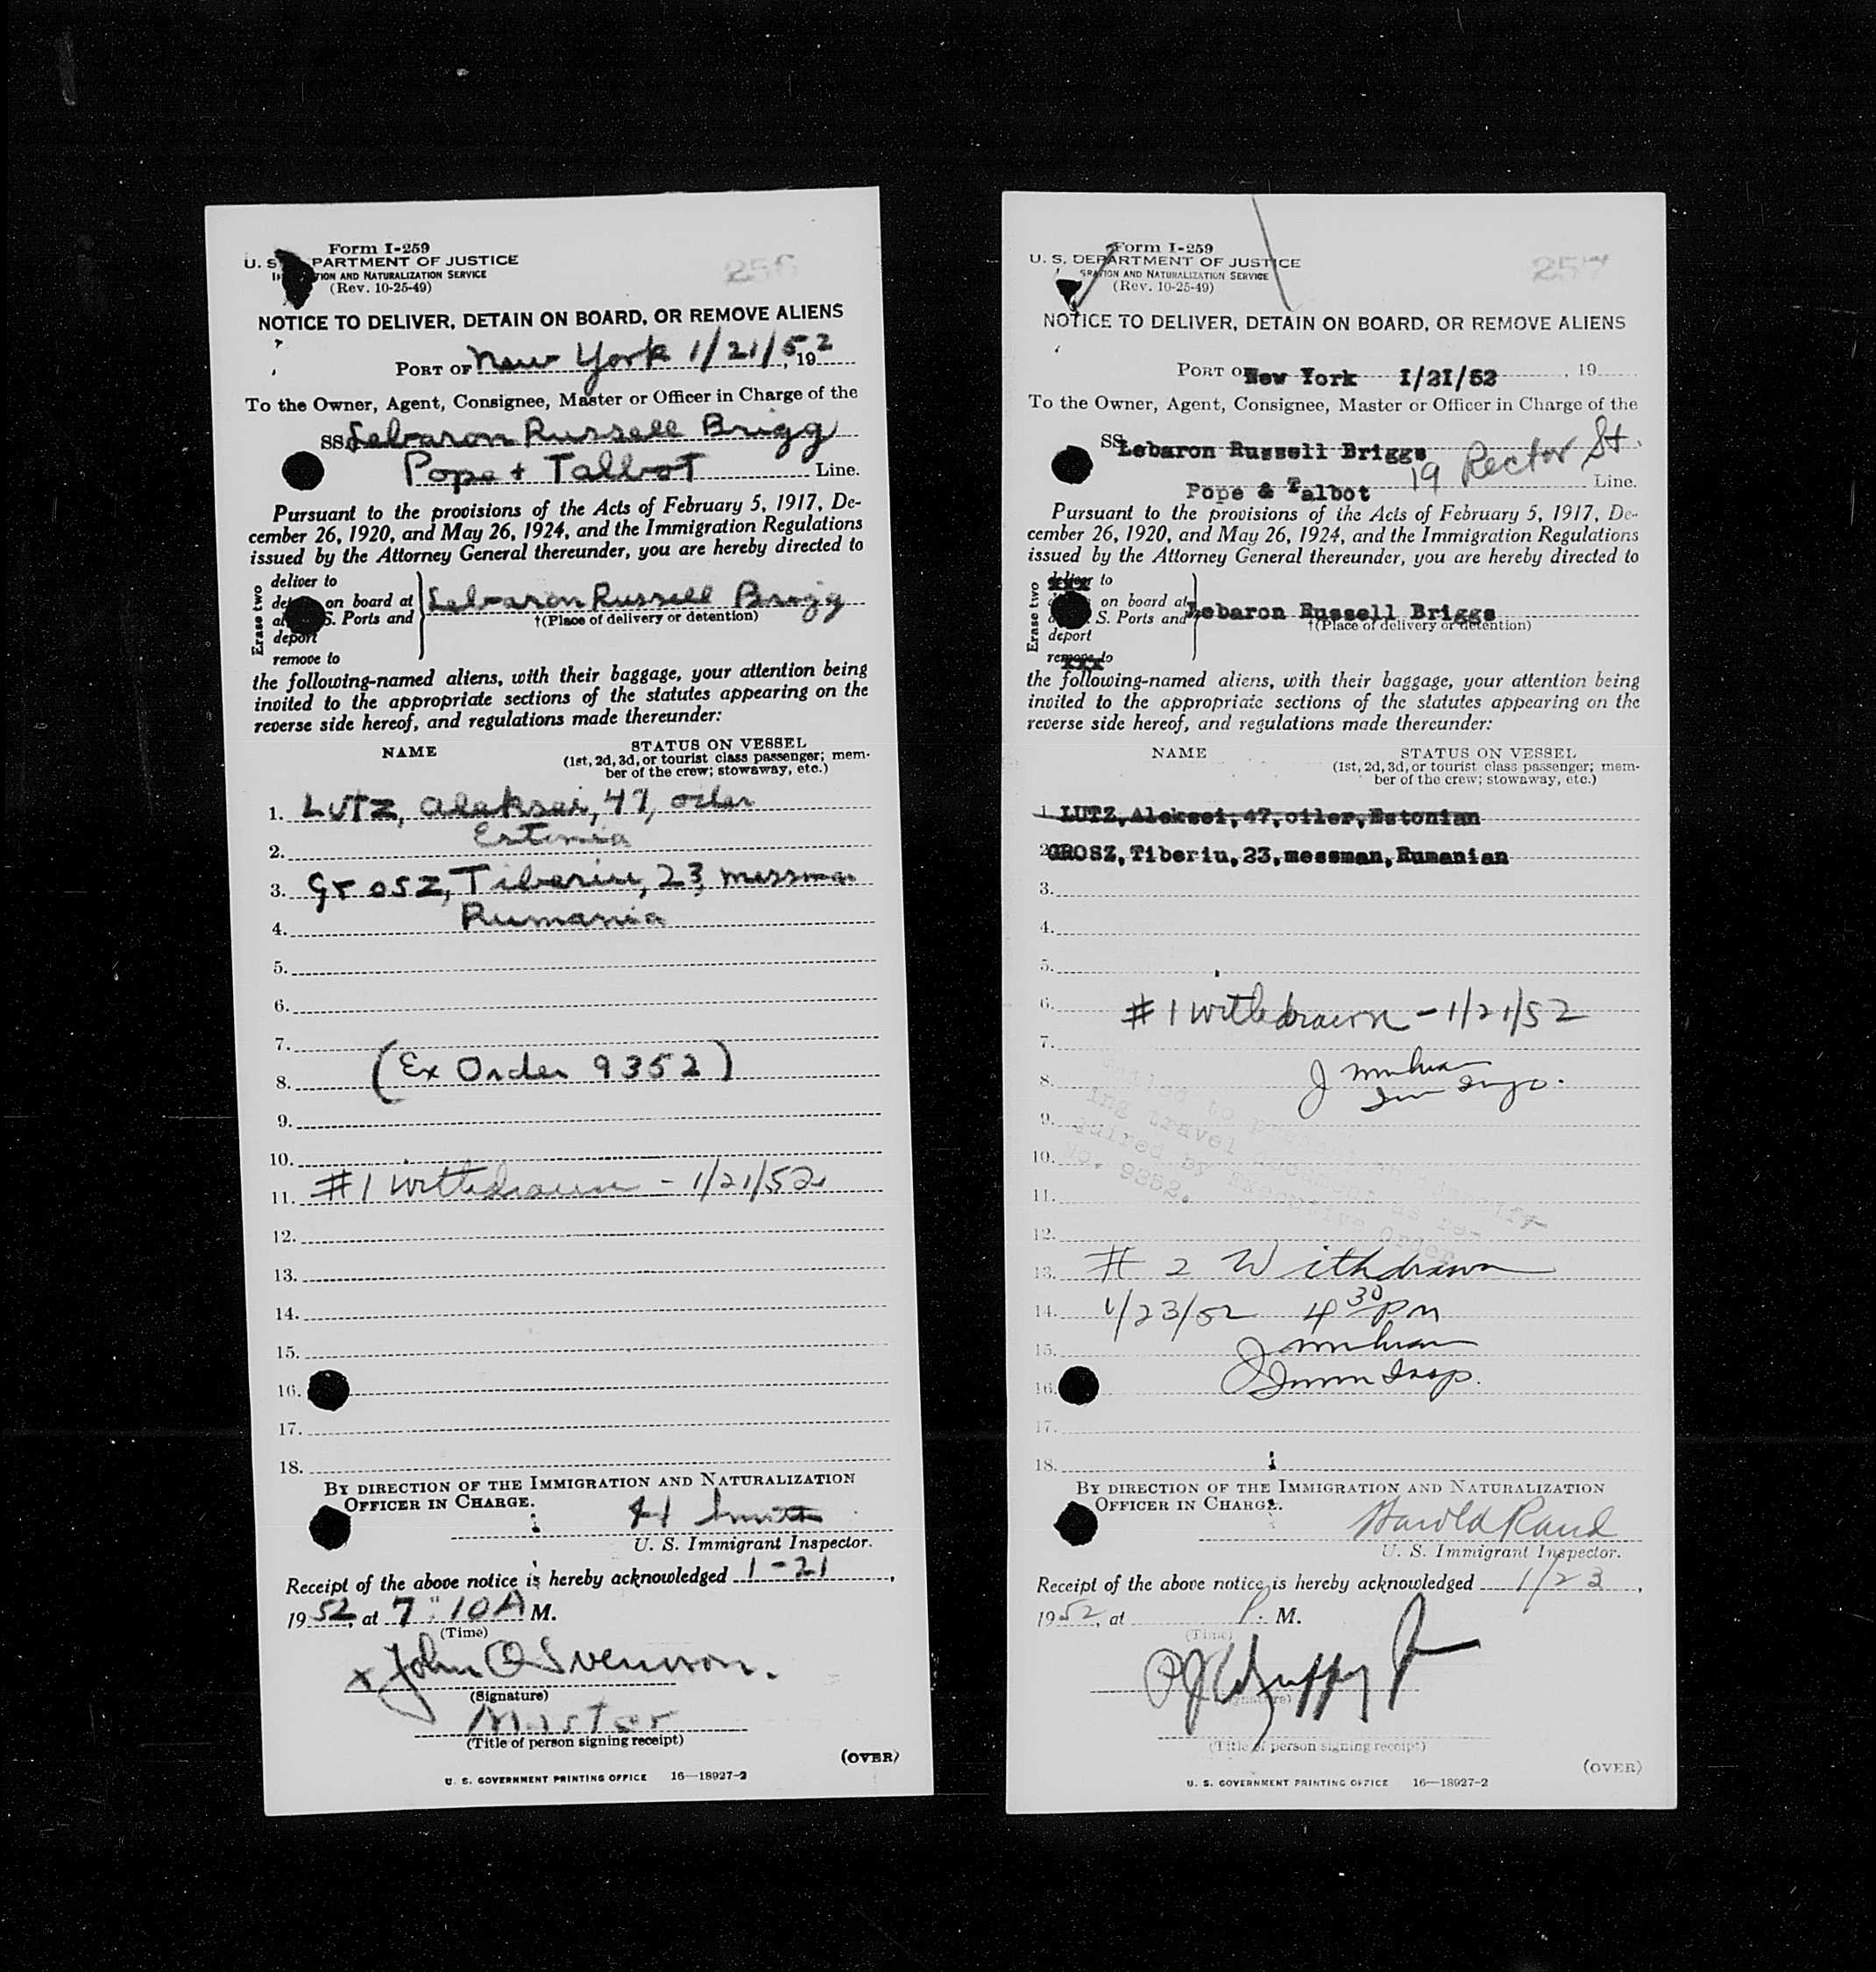 Form I-259
U. S. DEPARTMENT OF JUSTICE
TION AND NATURALIZATION SERVICE
(Rev. 10-25-49)
256
NOTICE TO DELIVER, DETAIN ON BOARD, OR REMOVE ALIENS
PORT OF New York 1/21/52, 192
To the Owner, Agent, Consignee, Master or Officer in Charge of the
SS Lebaron Russell Brigg
Pope + Talbot Line.
Pursuant to the provisions of the Acts of February 5, 1917, De-
cember 26, 1920, and May 26, 1924, and the Immigration Regulations
issued by the Attorney General thereunder, you are hereby directed to
Erase two
deliver to
on board at
S. Ports and
deport
remove to
Lebaron Russell Brigg
†(Place of delivery or detention)
the following-named aliens, with their baggage, your attention being
invited to the appropriate sections of the statutes appearing on the
reverse side hereof, and regulations made thereunder:
NAME
STATUS ON VESSEL
(1st, 2d, 3d, or tourist class passenger; mem-
ber of the crew; stowaway, etc.)
1. LUTZ, Aleksei, 47, oiler
2. Estonia
3. Grosz, Tiberiu, 23, messman
4. Rumania
5.
6.
7.
8. (Ex Order 9352)
9.
10.
11. #1 Withdrawn - 1/21/52
12.
13.
14.
15.
16.
17.
18.
BY DIRECTION OF THE IMMIGRATION AND NATURALIZATION
OFFICER IN CHARGE.
H Smith
U. S. Immigrant Inspector.
Receipt of the above notice is hereby acknowledged 1-21,
1952, at 7:10 A M.
(Time)
x John O Svenson.
(Signature)
Master
(Title of person signing receipt)
(OVER)
U. S. GOVERNMENT PRINTING OFFICE 16—18927-2
Form I-259
U. S. DEPARTMENT OF JUSTICE
GRATION AND NATURALIZATION SERVICE
(Rev. 10-25-49)
257
NOTICE TO DELIVER, DETAIN ON BOARD, OR REMOVE ALIENS
PORT OF New York 1/21/52, 19
To the Owner, Agent, Consignee, Master or Officer in Charge of the
SS Lebaron Russell Briggs 19 Rector St.
Pope & Talbot Line.
Pursuant to the provisions of the Acts of February 5, 1917, De-
cember 26, 1920, and May 26, 1924, and the Immigration Regulations
issued by the Attorney General thereunder, you are hereby directed to
Erase two
deliver to
on board at
S. Ports and
deport
remove to
Lebaron Russell Briggs
†(Place of delivery or detention)
the following-named aliens, with their baggage, your attention being
invited to the appropriate sections of the statutes appearing on the
reverse side hereof, and regulations made thereunder:
NAME
STATUS ON VESSEL
(1st, 2d, 3d, or tourist class passenger; mem-
ber of the crew; stowaway, etc.)
1. LUTZ, Aleksei, 47, oiler, Estonian
2. GROSZ, Tiberiu, 23, messman, Rumanian
3.
4.
5.
6. #1 Withdrawn - 1/21/52
7.
8.
9.
ing travel document as re-
quired by Executive Order
No. 9352.
10.
11.
12.
13. # 2 Withdrawn
14. 1/23/52 4 30 PM
15.
Imm Insp.
16.
17.
18.
BY DIRECTION OF THE IMMIGRATION AND NATURALIZATION
OFFICER IN CHARGE.
Harold Rand
U. S. Immigrant Inspector.
Receipt of the above notice is hereby acknowledged 1/23,
1952, at P. M.
(Time)
(Signature)
(Title of person signing receipt)
(OVER)
U. S. GOVERNMENT PRINTING OFFICE 16—18927-2